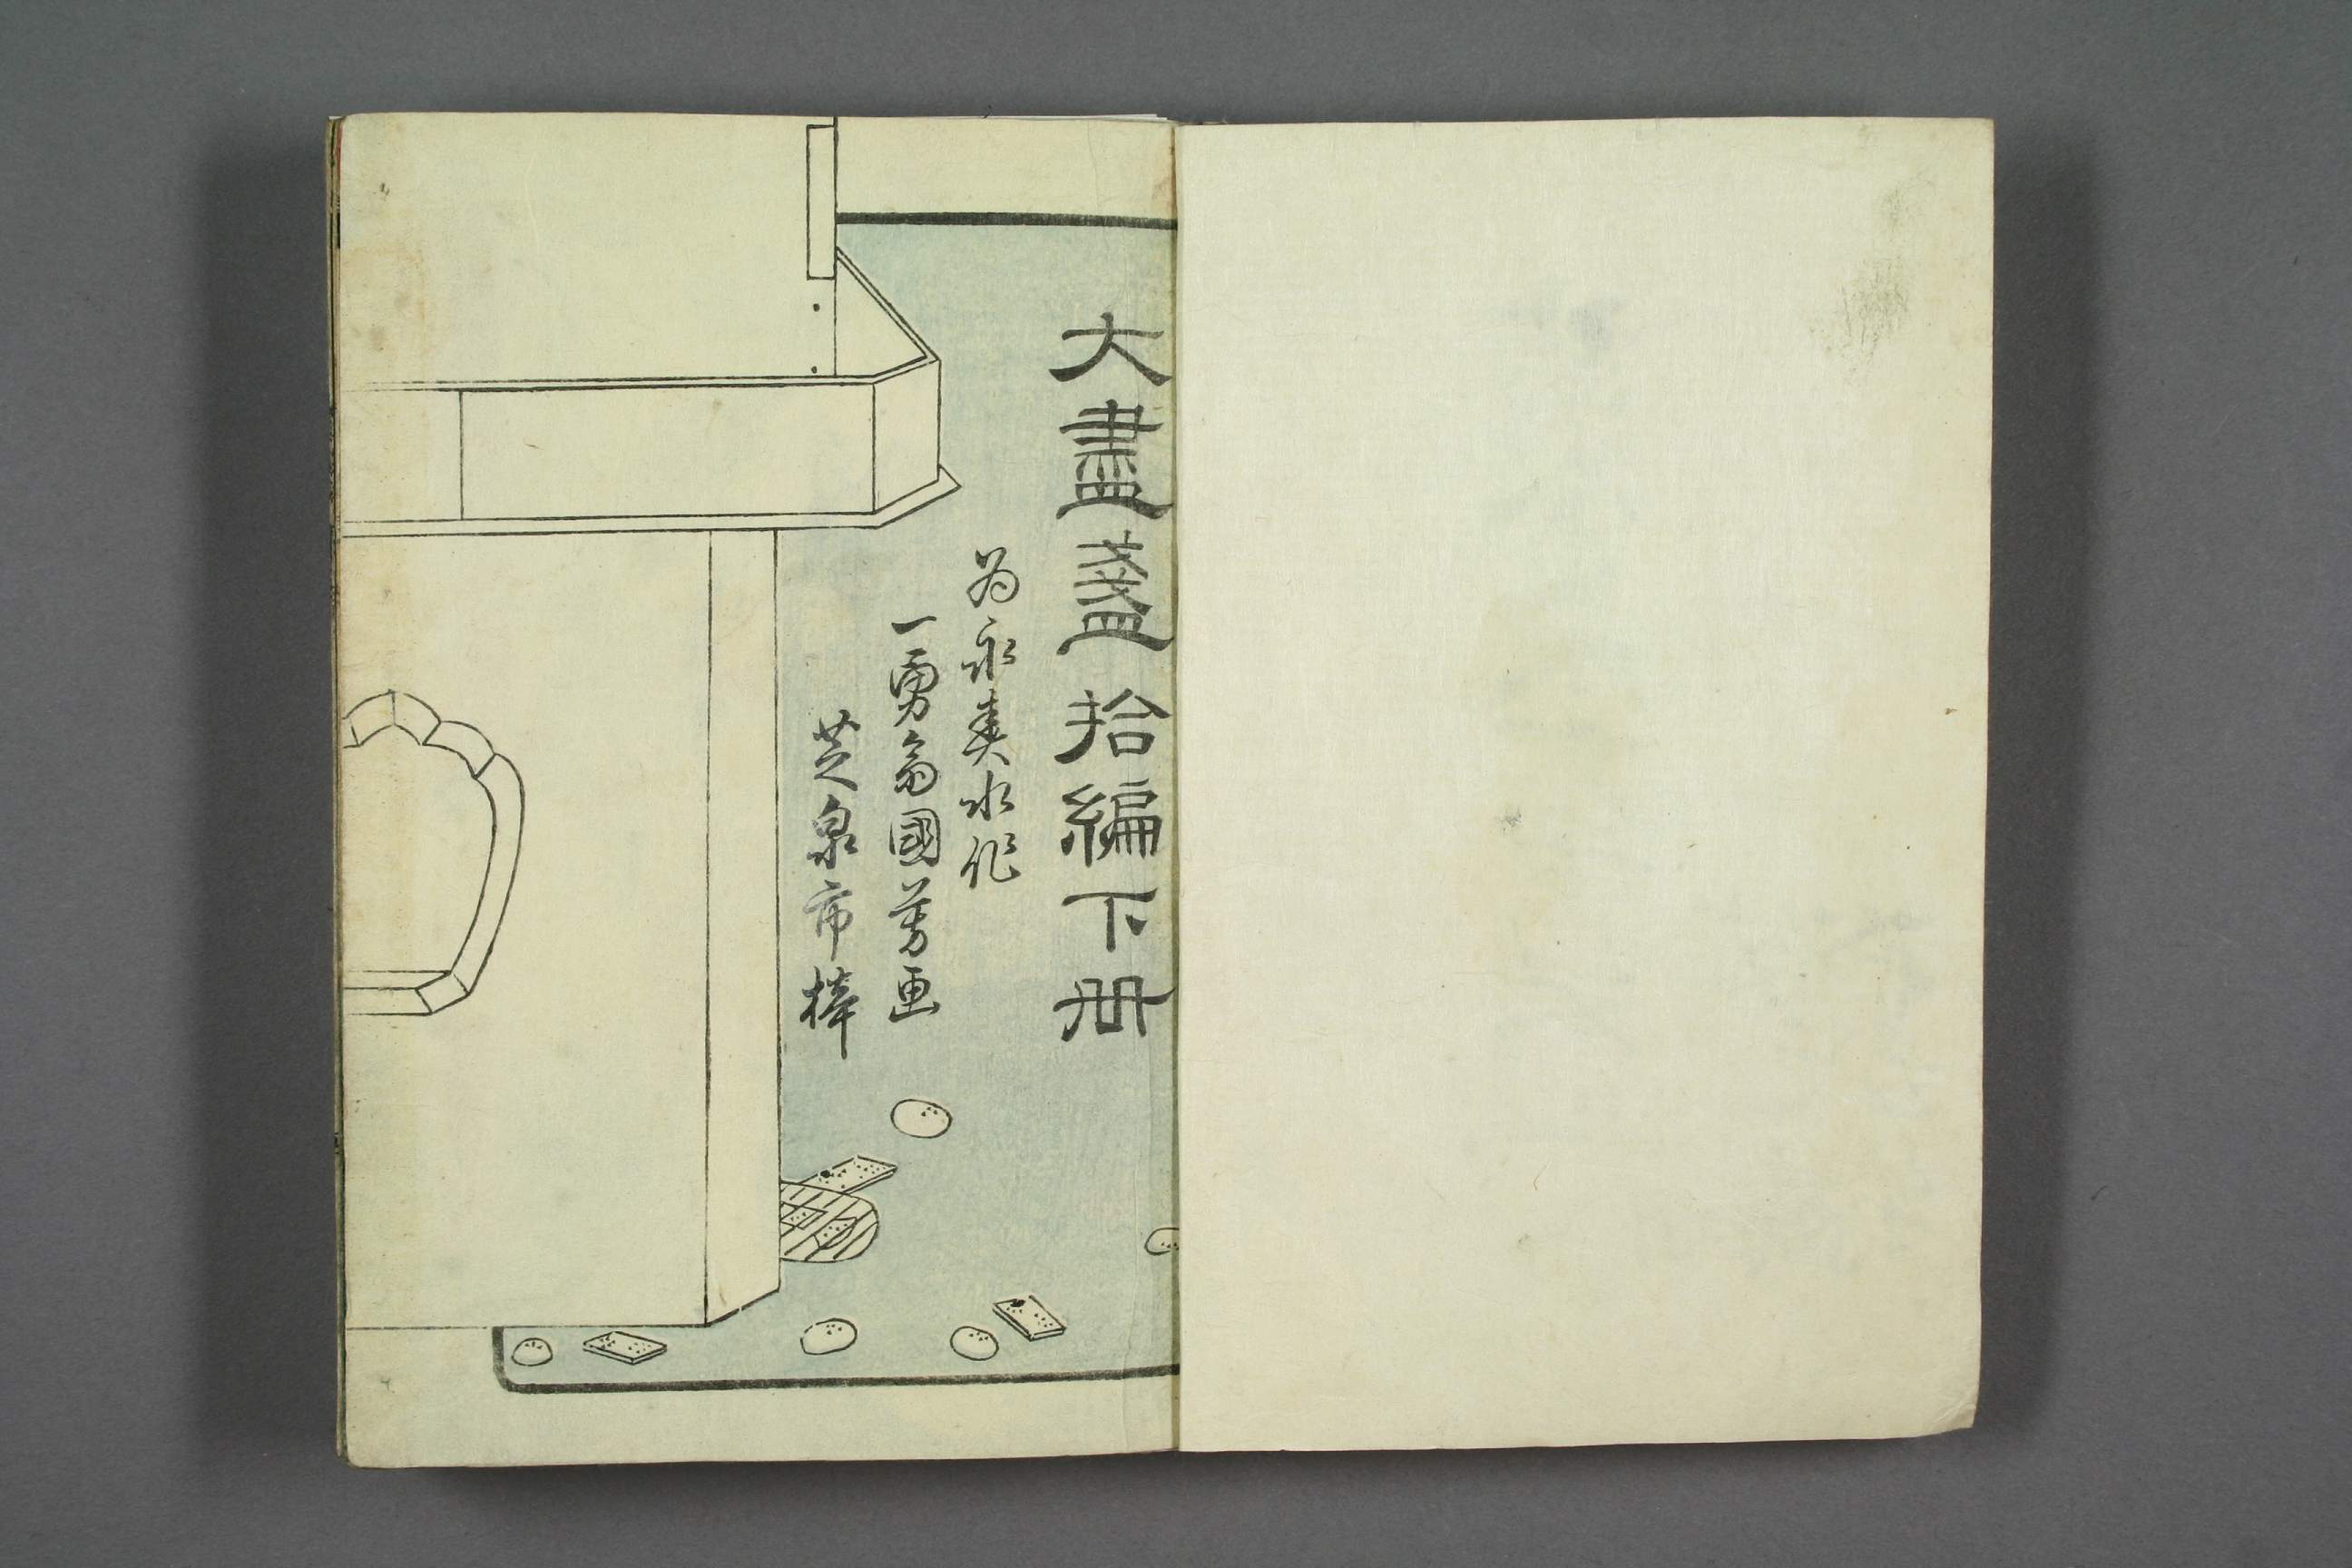 大盡盞拾編下册
為永春水作
一勇斎國芳画
芝泉市梓